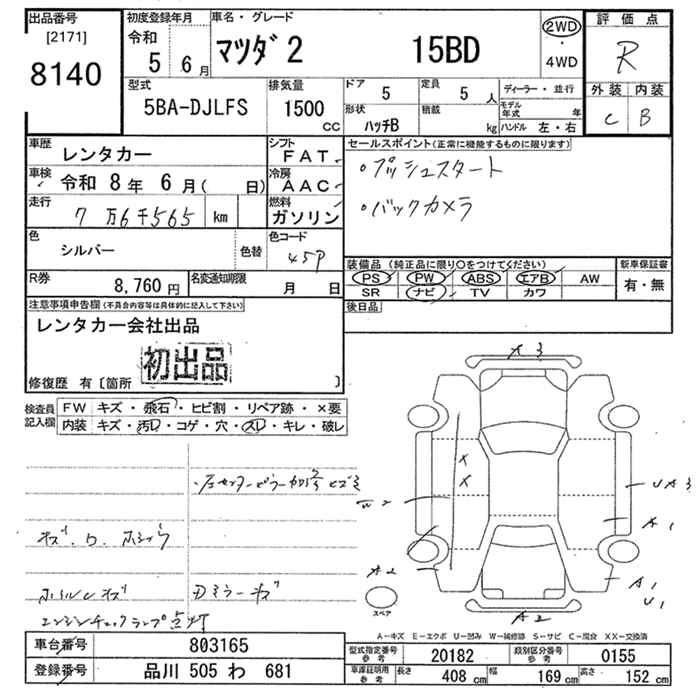 出品番号
[2171]
8140
初度登録年月
令和
5 6月
車名・グレード
マツダ2 15BD
2WD
・
4WD
評価点
R
外装 内装
C B
型式
5BA-DJLFS
排気量
1500
CC
ドア
5
定員
5 人
形状
ハッチB
積載
kg
ディーラー・並行
モデル年式 年
ハンドル 左・右
車歴
レンタカー
シフト
FAT
車検
令和 8年 6月( 日)
冷房
AAC
走行
7万6千565 km
燃料
ガソリン
色
シルバー
色替
色コード
45P
セールスポイント(正常に機能するものに限ります)
・プッシュスタート
・バックカメラ
R券
8,760円
名変通知期限
月 日
装備品(純正品に限り○をつけてください)
PS PW ABS エアB AW
SR ナビ TV カワ
新車保証書
有・無
後日品
注意事項申告欄(不具合内容等は具体的に記入して下さい)
レンタカー会社出品
初出品
修復歴 有〔箇所 〕
検査員記入欄
FW キズ・飛石・ヒビ割・リペア跡・×要
内装 キズ・汚レ・コゲ・穴・スレ・キレ・破レ
ホイルキズ
Dミラーキズ
エンジンチェックランプ点灯
X3
X
X
W2
UA3
A1
A2
A1
U1
A2
スペア
A-キズ E-エクボ U-凹み W-補修跡 S-サビ C-腐食 XX-交換済
車台番号
803165
登録番号
品川 505 わ 681
型式指定番号
参考
20182
類別区分番号
参考
0155
車庫証明用
参考
長さ
408 cm
幅
169 cm
高さ
152 cm